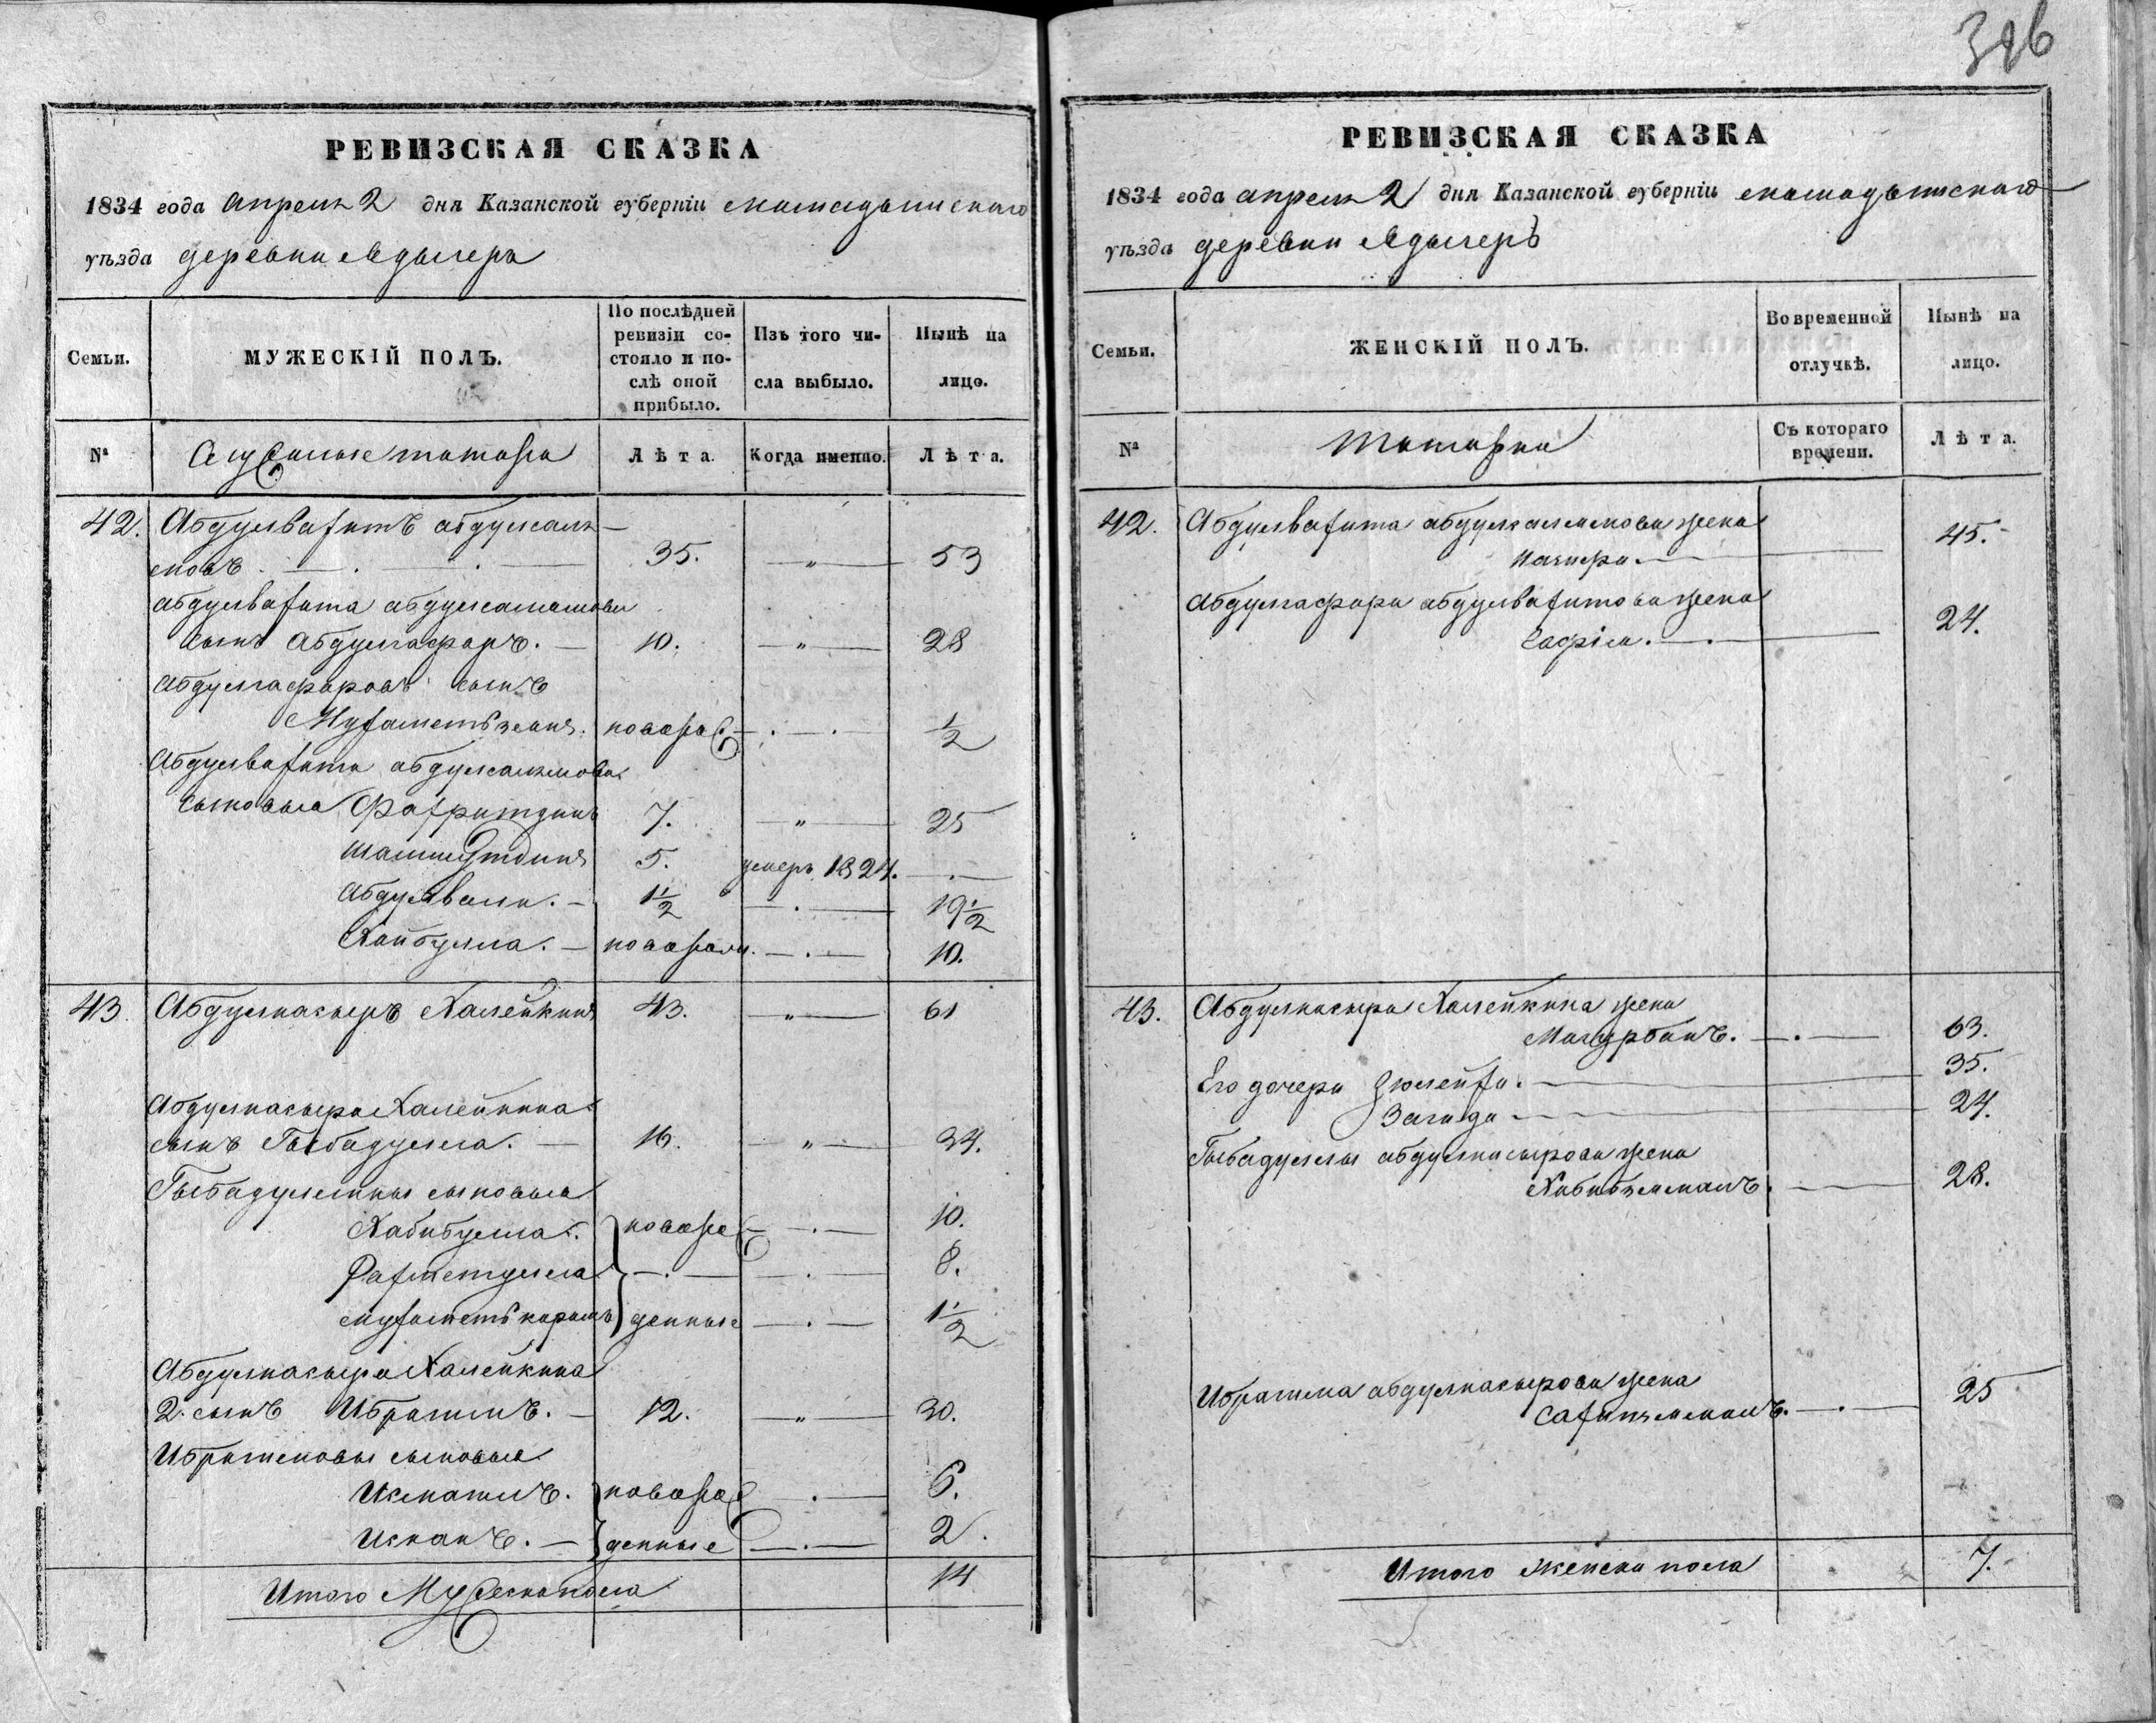 316
РЕВИЗСКАЯ СКАЗКА
1834 года апреля 2 дня Казанской губерніи мамадышскаго
уѣзда деревни Адысерь
Семьи.
МУЖЕСКІЙ ПОЛЪ.
По послѣдней ревизіи состояло и послѣ оной прибыло.
Изъ того числа выбыло.
Нынѣ на лицо.
№
Служилые татара
Лѣта.
Когда именно.
Лѣта.
42. Абдулвахитъ абдулсаля-
мовъ 35. „ 53
абдулвахита абдулсалямова
сынъ абдулгафаръ. 10. „ 28
абдулгафаровъ сынъ
Мухаметьзянъ. новорож. 1/2
Абдулвахита абдулсалямова
сыновья Фахритдинъ 7. „ 25
шамшутдинъ 5. умеръ 1824.
абдулвали. 1 1/2 19 1/2
Хайбулла. новорож. 10.
43. Абдулнасыръ Халейкинъ 43. „ 61
Абдулнасыра Халейкина
сынъ Гыбадулла. 16. „ 34.
Гыбадуллины сыновья
Хабибулла. новорож 10.
Рахметулла 8.
мухаметькаримъ денные 1 1/2
Абдулнасыра Халейкина
2. сынъ Ибрагимъ. 12. „ 30.
Ибрагимовы сыновья
Исмагилъ. новорож 6.
Исханъ. денные 2.
Итого Мужеска пола 14
РЕВИЗСКАЯ СКАЗКА
1834 года апреля 2 дня Казанской губерніи мамадышскаго
уѣзда деревни Адысеръ
Семьи.
ЖЕНСКІЙ ПОЛЪ.
Во временной отлучкѣ.
Нынѣ на лицо.
№
татарки
Съ котораго времени.
Лѣта.
42. Абдулвахита абдулсалямова жена
45.
Абдулгафара абдулвахитова жена
Сафія. 24.
43. Абдулнасыра Халейкина жена
Магурбанъ. 63.
Его дочери Зюлейха. 35.
Загида 24.
Гыбадуллы абдулнасырова жена
Хабибзямалъ. 28.
Ибрагима абдулнасырова жена
Сахипзямалъ. 25
Итого женска пола 7.